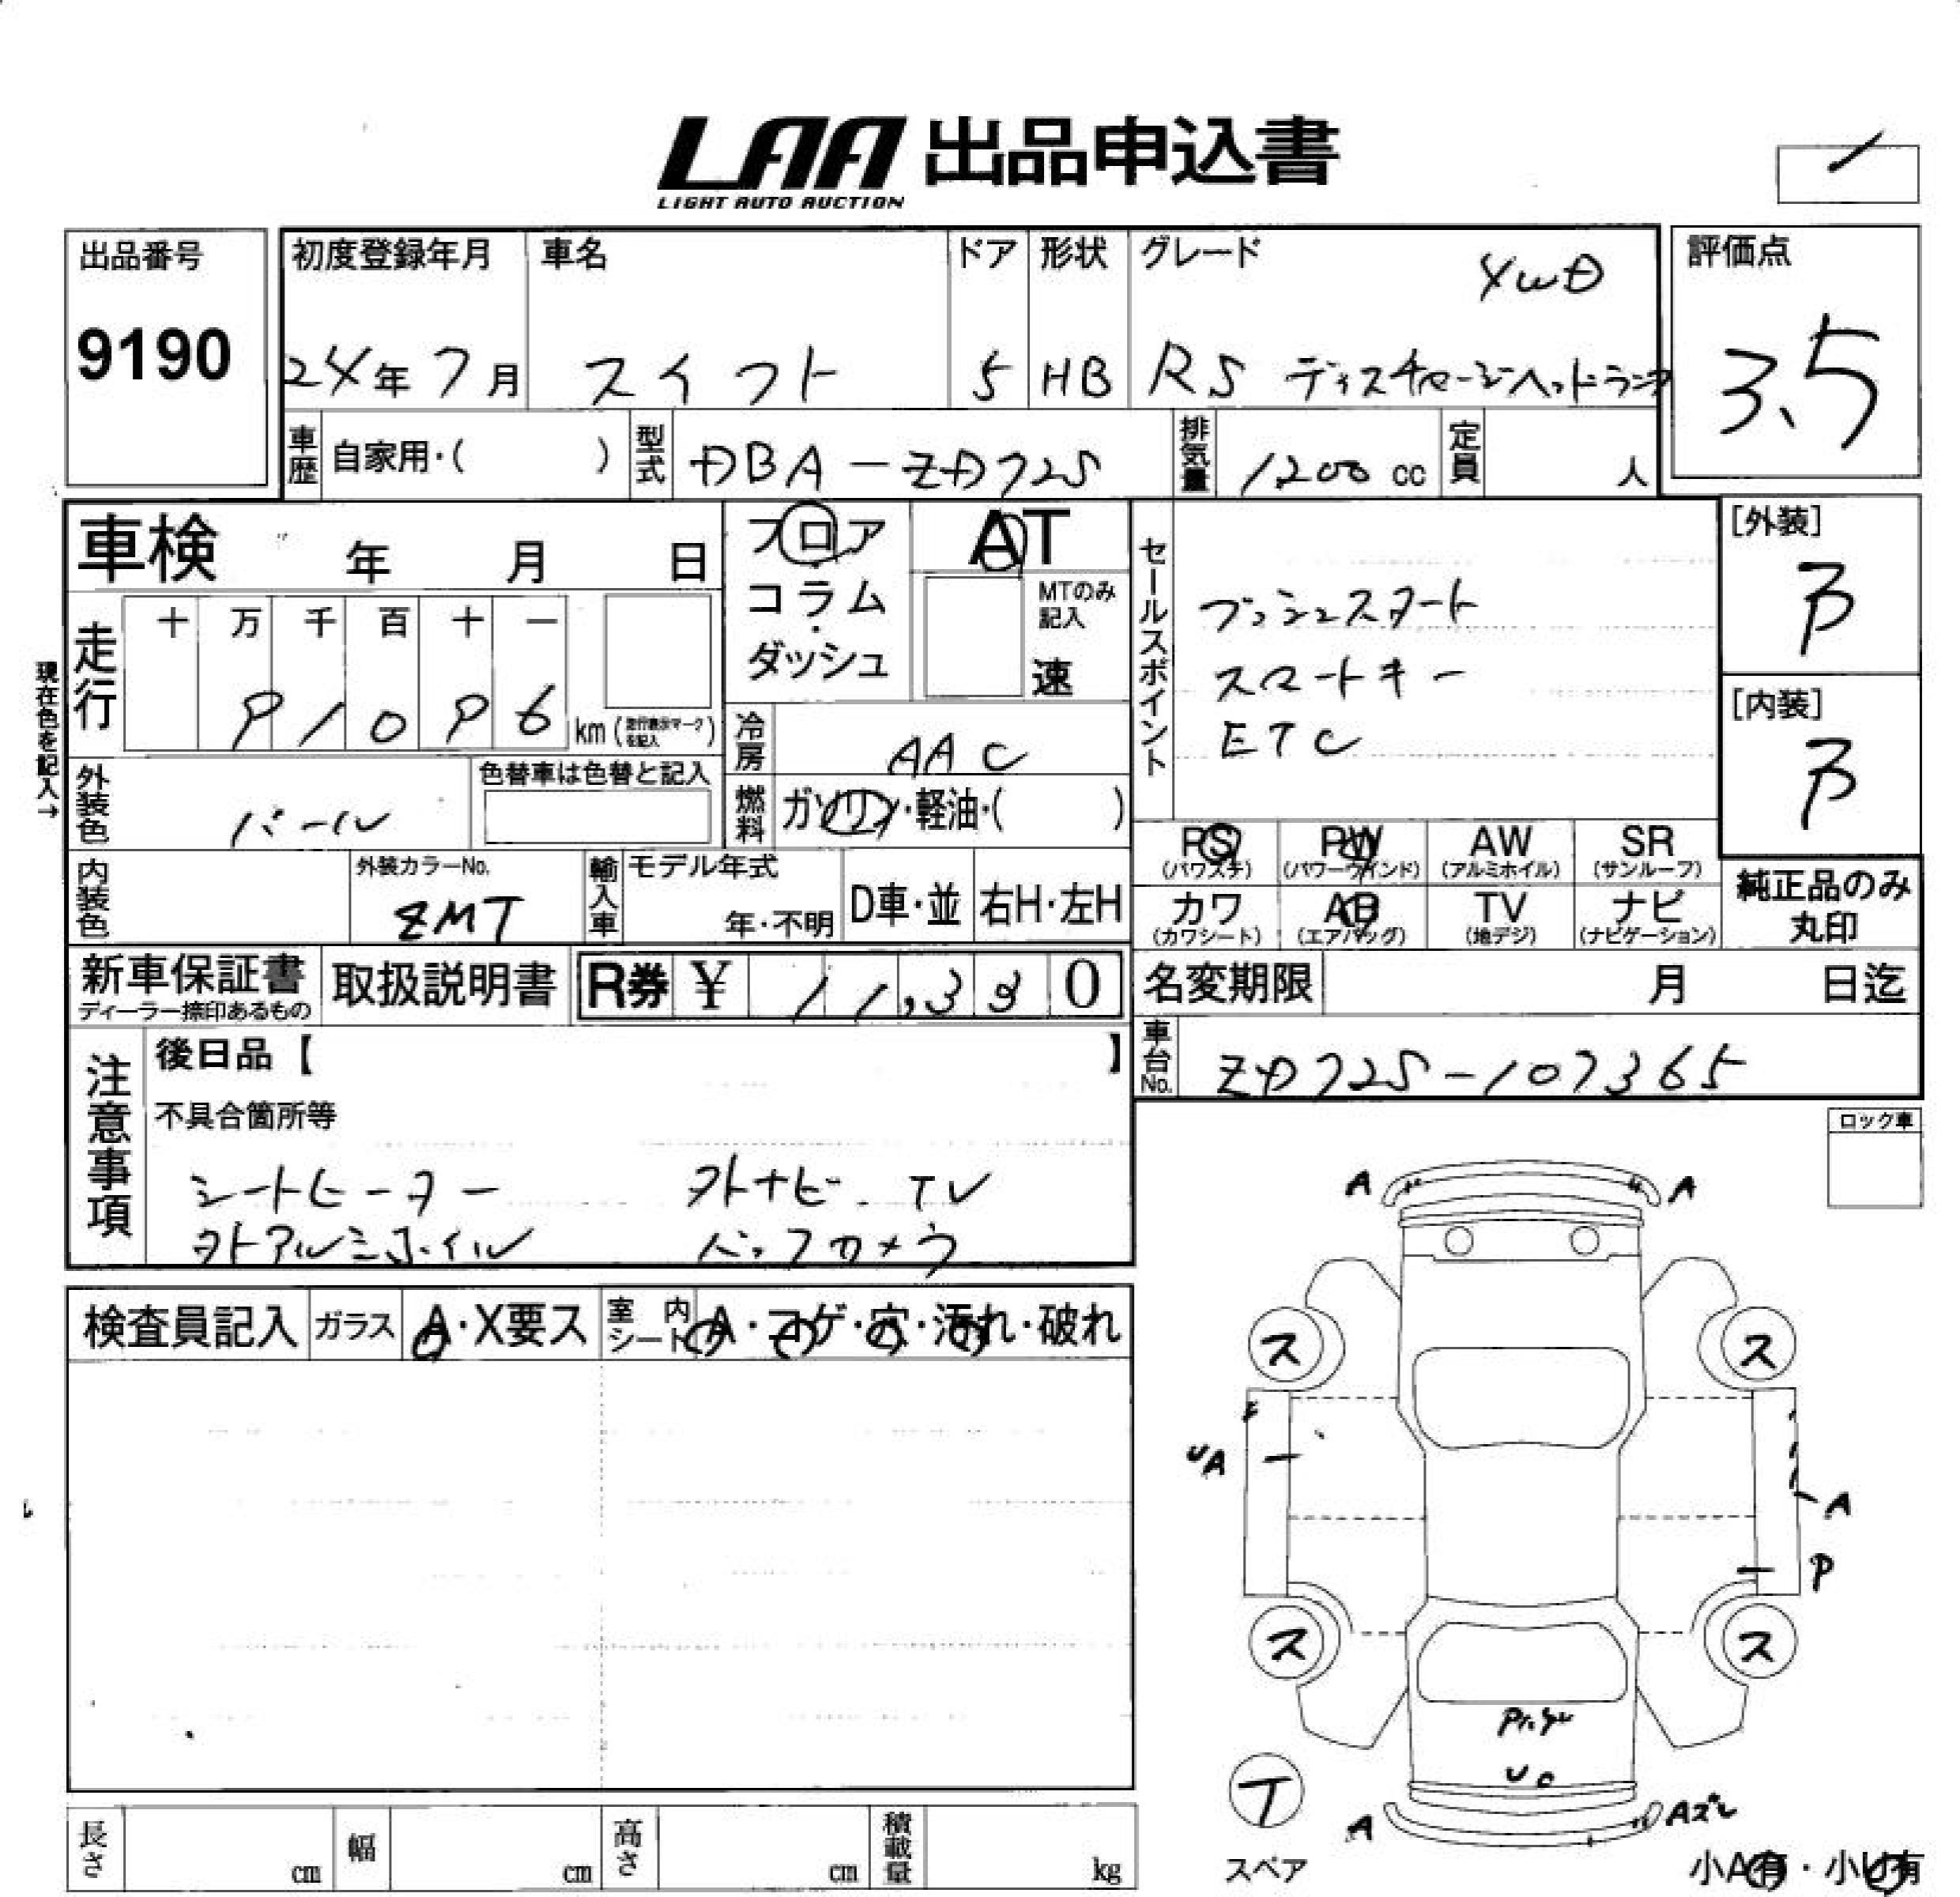 LAA 出品申込書
LIGHT AUTO AUCTION
出品番号
9190
初度登録年月
24年7月
車名
スイフト
ドア
5
形状
HB
グレード
4WD
RS ディスチャージヘッドランプ
評価点
3.5
車歴 自家用・( )
型式 DBA-ZD72S
排気量 1200 cc
定員 人
車検 年 月 日
フロア・コラム・ダッシュ
AT
MTのみ記入
速
現在色を記入→
走行 十 万 千 百 十 一
91096 km (走行表示マークを記入)
冷房 AAC
燃料 ガソリン・軽油・( )
外装色 パール
色替車は色替と記入
内装色
外装カラーNo.
ZMT
輸入車
モデル年式
年・不明
D車・並
右H・左H
セールスポイント
プッシュスタート
スマートキー
ETC
[外装]
B
[内装]
B
RS (パワステ) PW (パワーウインド) AW (アルミホイル) SR (サンルーフ)
カワ (カワシート) AB (エアバッグ) TV (地デジ) ナビ (ナビゲーション)
純正品のみ丸印
新車保証書
ディーラー捺印あるもの
取扱説明書
R券 ¥ 11,330
名変期限 月 日迄
車台No. ZD72S-107365
注意事項
後日品【 】
不具合箇所等
シートヒーター 外ナビ TV
外アルミホイル バックカメラ
ロック車
検査員記入 ガラス A・X要ス 室内シート A・コゲ・穴・汚れ・破れ
A A
ス ス
UA
A
P
ス ス
T
スペア
A
Aズレ
小A有・小U有
長さ cm 幅 cm 高さ cm 積載量 kg